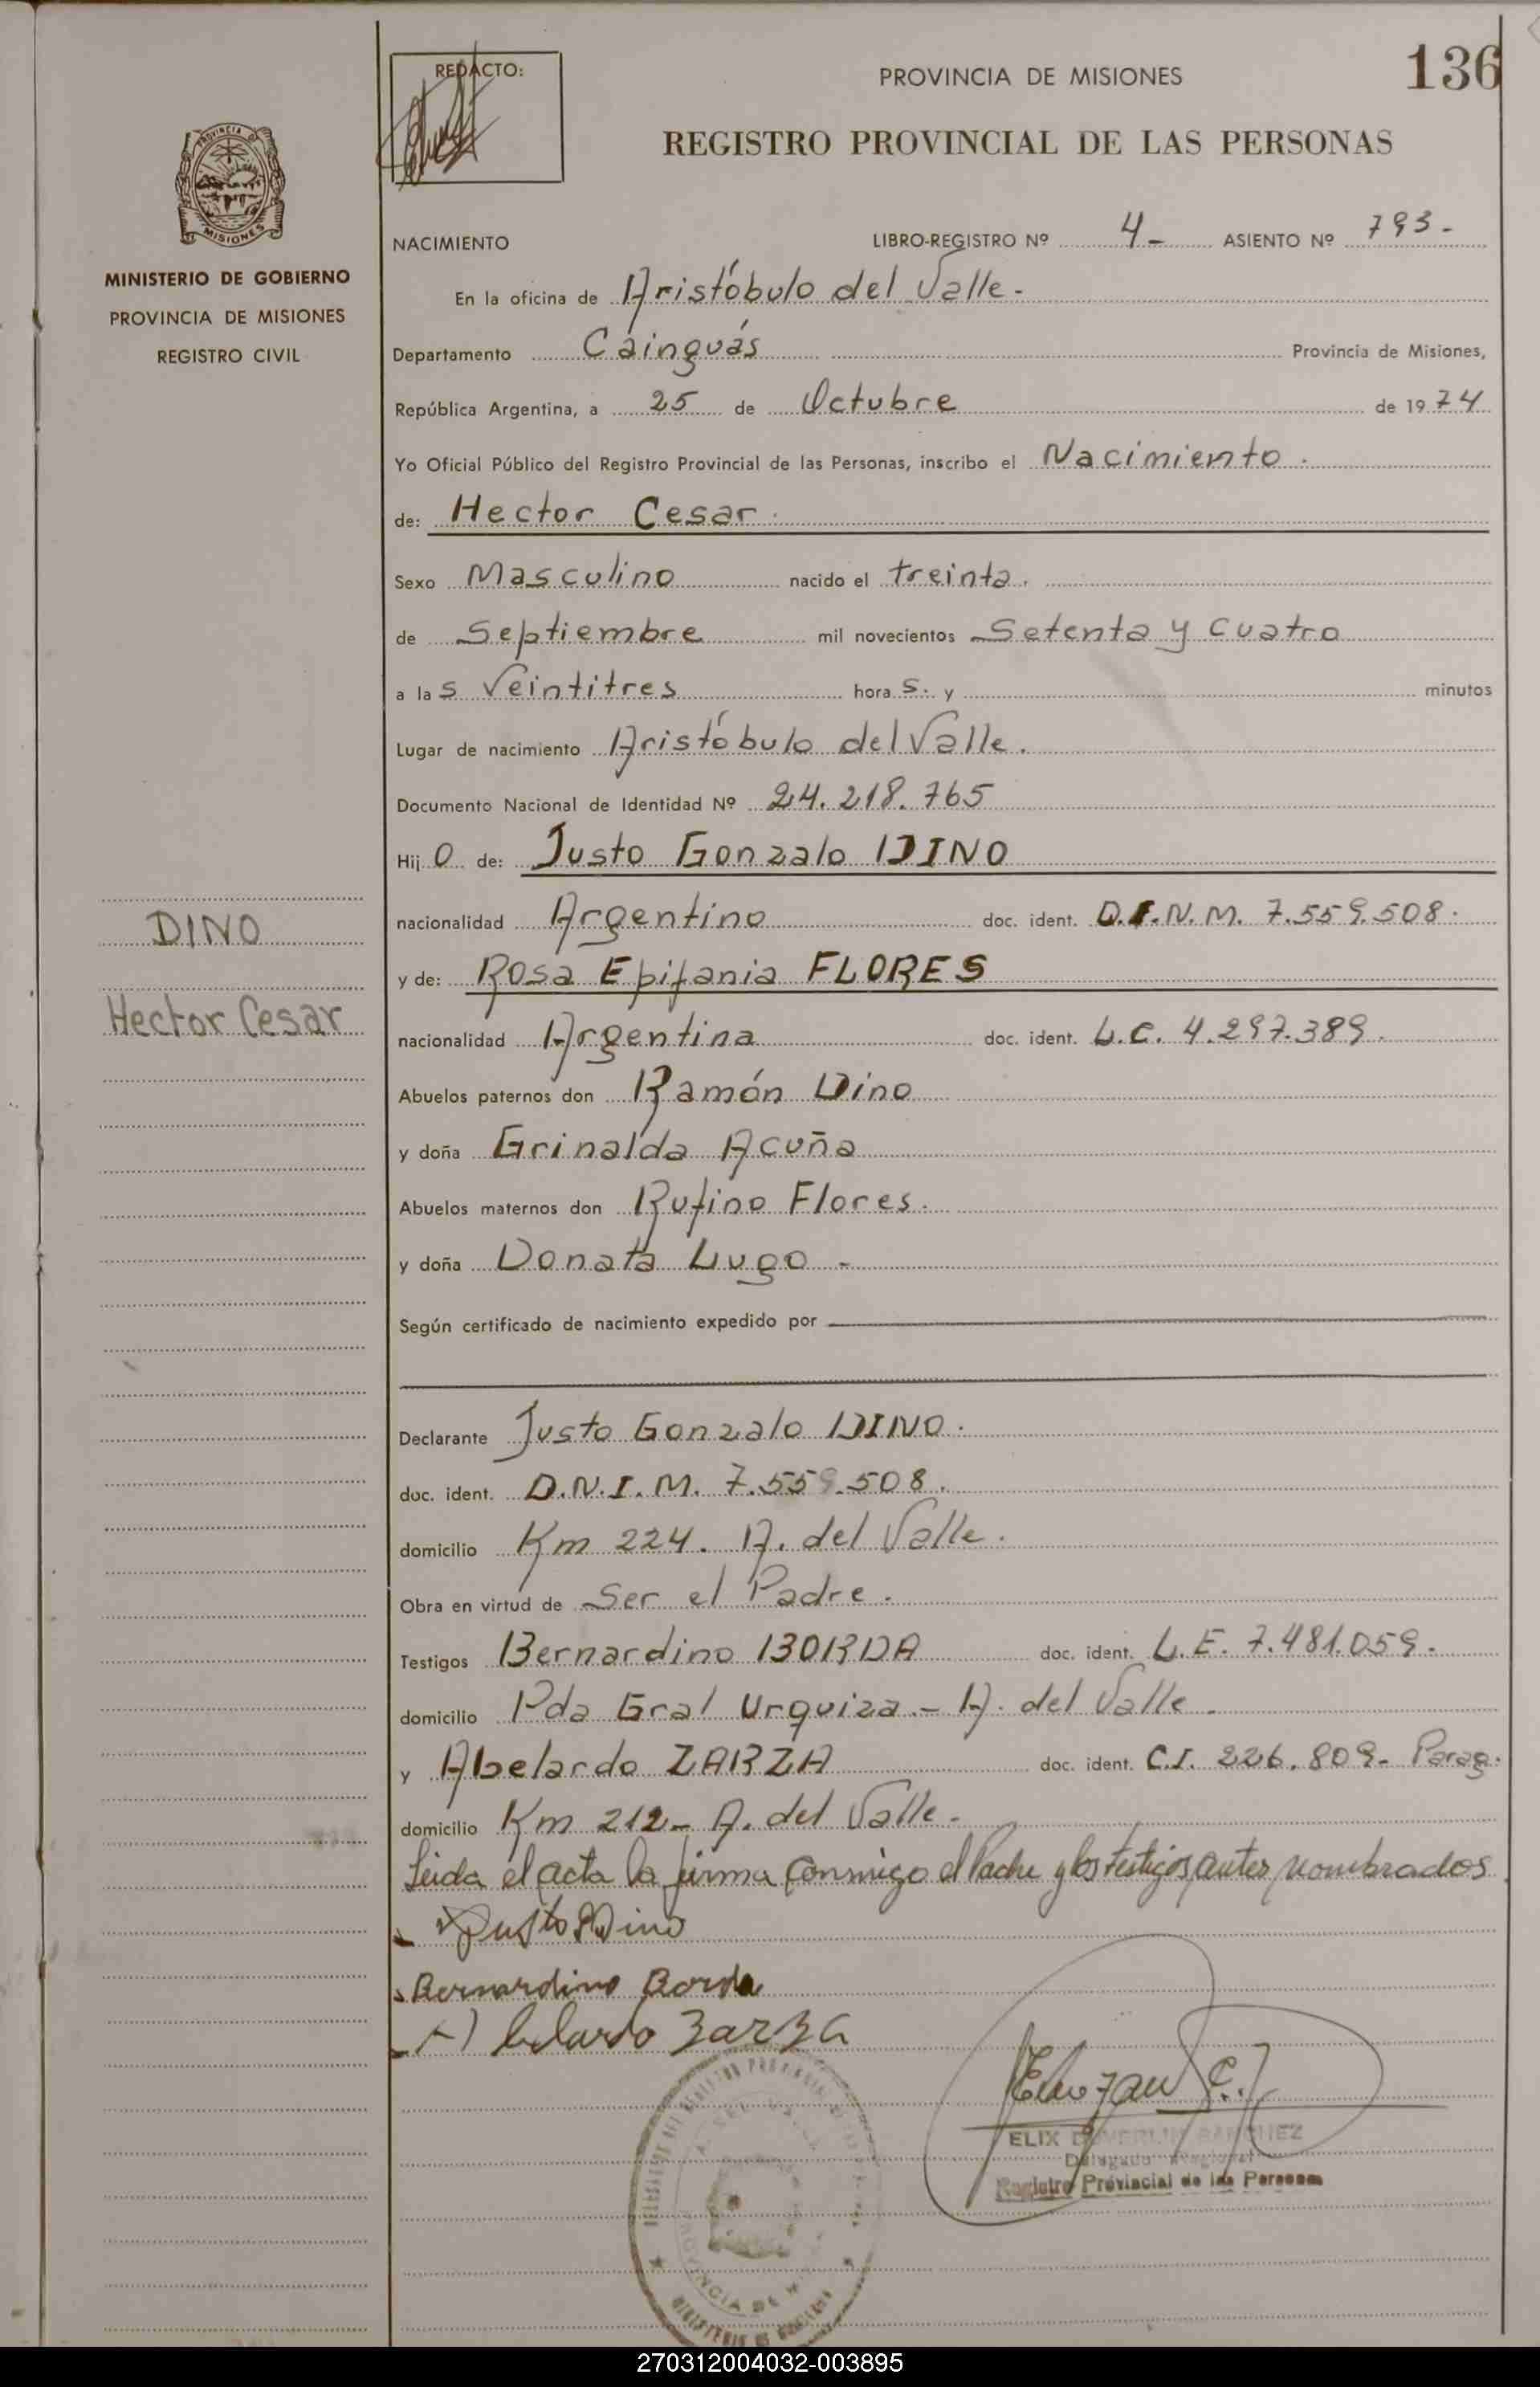 REDACTO:
PROVINCIA DE MISIONES
136
REGISTRO PROVINCIAL DE LAS PERSONAS
PROVINCIA DE
MISIONES
MINISTERIO DE GOBIERNO
PROVINCIA DE MISIONES
REGISTRO CIVIL
NACIMIENTO LIBRO-REGISTRO Nº 4- ASIENTO Nº 793-
En la oficina de Aristóbulo del Valle-
Departamento Cainguás Provincia de Misiones,
República Argentina, a 25 de Octubre de 1974
Yo Oficial Público del Registro Provincial de las Personas, inscribo el Nacimiento.
de: Hector Cesar.
Sexo Masculino nacido el treinta.
de Septiembre mil novecientos Setenta y cuatro
a las Veintitres horas. y minutos
Lugar de nacimiento Aristóbulo del Valle.
Documento Nacional de Identidad Nº 24.218.765
Hijo de: Justo Gonzalo DINO
DINO
nacionalidad Argentino doc. ident. D.I.N.M. 7.559.508.
y de: Rosa Epifania FLORES
Hector Cesar
nacionalidad Argentina doc. ident. L.C. 4.297.389.
Abuelos paternos don Ramón Dino
y doña Grinalda Acuña
Abuelos maternos don Rufino Flores.
y doña Donata Lugo -
Según certificado de nacimiento expedido por
Declarante Justo Gonzalo DINO.
doc. ident. D.N.I.M. 7.559.508.
domicilio Km 224. A. del Valle.
Obra en virtud de Ser el Padre.
Testigos Bernardino BORDA doc. ident. L.E. 7.481.059.
domicilio Pda Gral Urquiza - A. del Valle.
y Abelardo ZARZA doc. ident. C.I. 226.809- Parag.
domicilio Km 212- A. del Valle-
Leida el acta la firma conmigo el Padre y los testigos antes nombrados
Justo Dino
Bernardino Borda
Abelardo Zarza
ELIX SANCHEZ
Delegado Regional
Registro Provincial de las Personas
PROVINCIA DE
MINISTERIO DE GOBIERNO
270312004032-003895